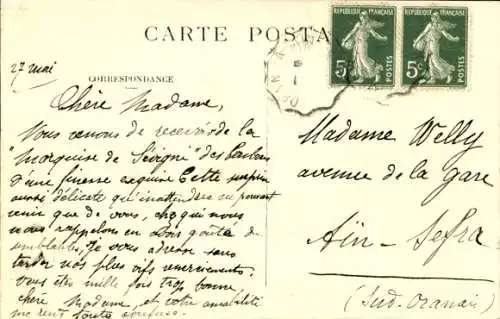 CARTE POSTA
RÉPUBLIQUE FRANÇAISE
5c POSTES
RÉPUBLIQUE FRANÇAISE
5c POSTES
27 mai
CORRESPONDANCE
Chère Madame,
Vous venons de recevoir de la
"Marquise de Sévigné" des bonbons
d'une finesse exquise Cette surprise
aussi délicate qu'inattendue ne pouvait
venir que de vous, chez qui nous
nous rappelons en avoir goûté de
semblables, Je vous adresse sans
tarder nos plus vifs remerciements.
Vous êtes mille fois trop bonne
chère Madame, et votre amabilité
toute
Madame Welly
avenue de la Gare
Aïn-Sefra
(Sud-Oranais)